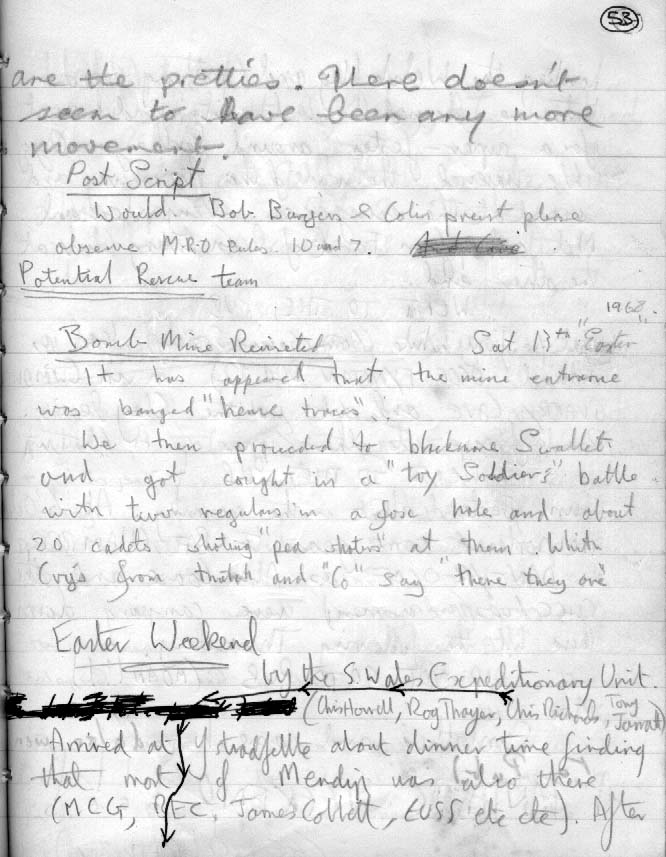 53
are the pretties. There doesn't
seem to have been any more
movement.
Post Script
Would Bob & Colin priest please
observe M.R.O Rules 10 and 7.
Potential Rescue team
1968
Bomb Mine Revisited Sat 13th "Easter"
It has appeared that the mine entrance
was banged "hence traces".
We then proceeded to Swallet
and got caught in a "toy Soldiers" battle
with two regulars in a fox hole and about
20 cadets shoting "pea shoters" at them. With
Cry's from and "Co" say "there they are
Easter Weekend
by the S. Wales Expeditionary Unit.
(Chris Howell, Roy Thayer, Chris Richards, Tony Jarratt)
Arrived at Ystradfellte about dinner time finding
that most of Mendip was also there
(MCG, BEC, James Collett, EUSS etc etc). After